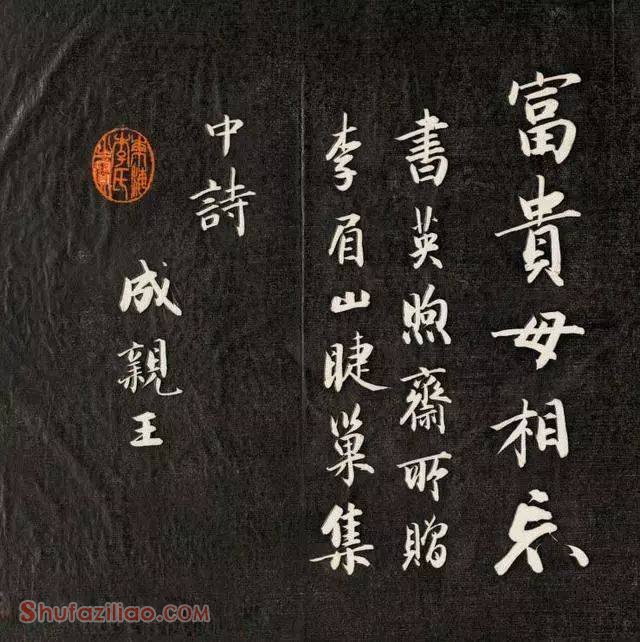 富貴毋相忘
書英煦齋所贈
李眉山睫巢集
中詩
成親王
東海李氏
Shufaziliao.COM